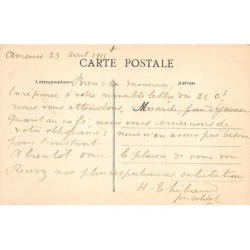 23 avril 1911
CARTE POSTALE
Correspondance
Adresse
Bien cher monsieur,
En reponse à votre aimable lettre du 22 ct
nous vous attendons, Mercredi, pour déjeuner
quant au café, nous vous remercions de
votre obligeance: nous n'en avons pas besoin
pour l'instant.
A bientôt donc le plaisir de vous voir
Recevez nos plus respectueuses salutations
H. Thibaud